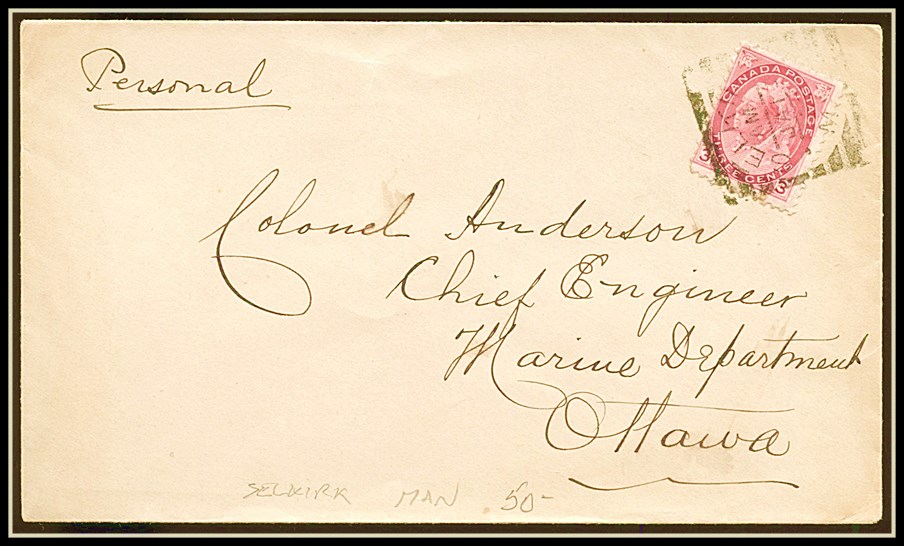 Personal
CANADA POSTAGE
THREE CENTS
3 3
Colonel Anderson
Chief Engineer
Marine Department
Ottawa
SELKIRK MAN 50-